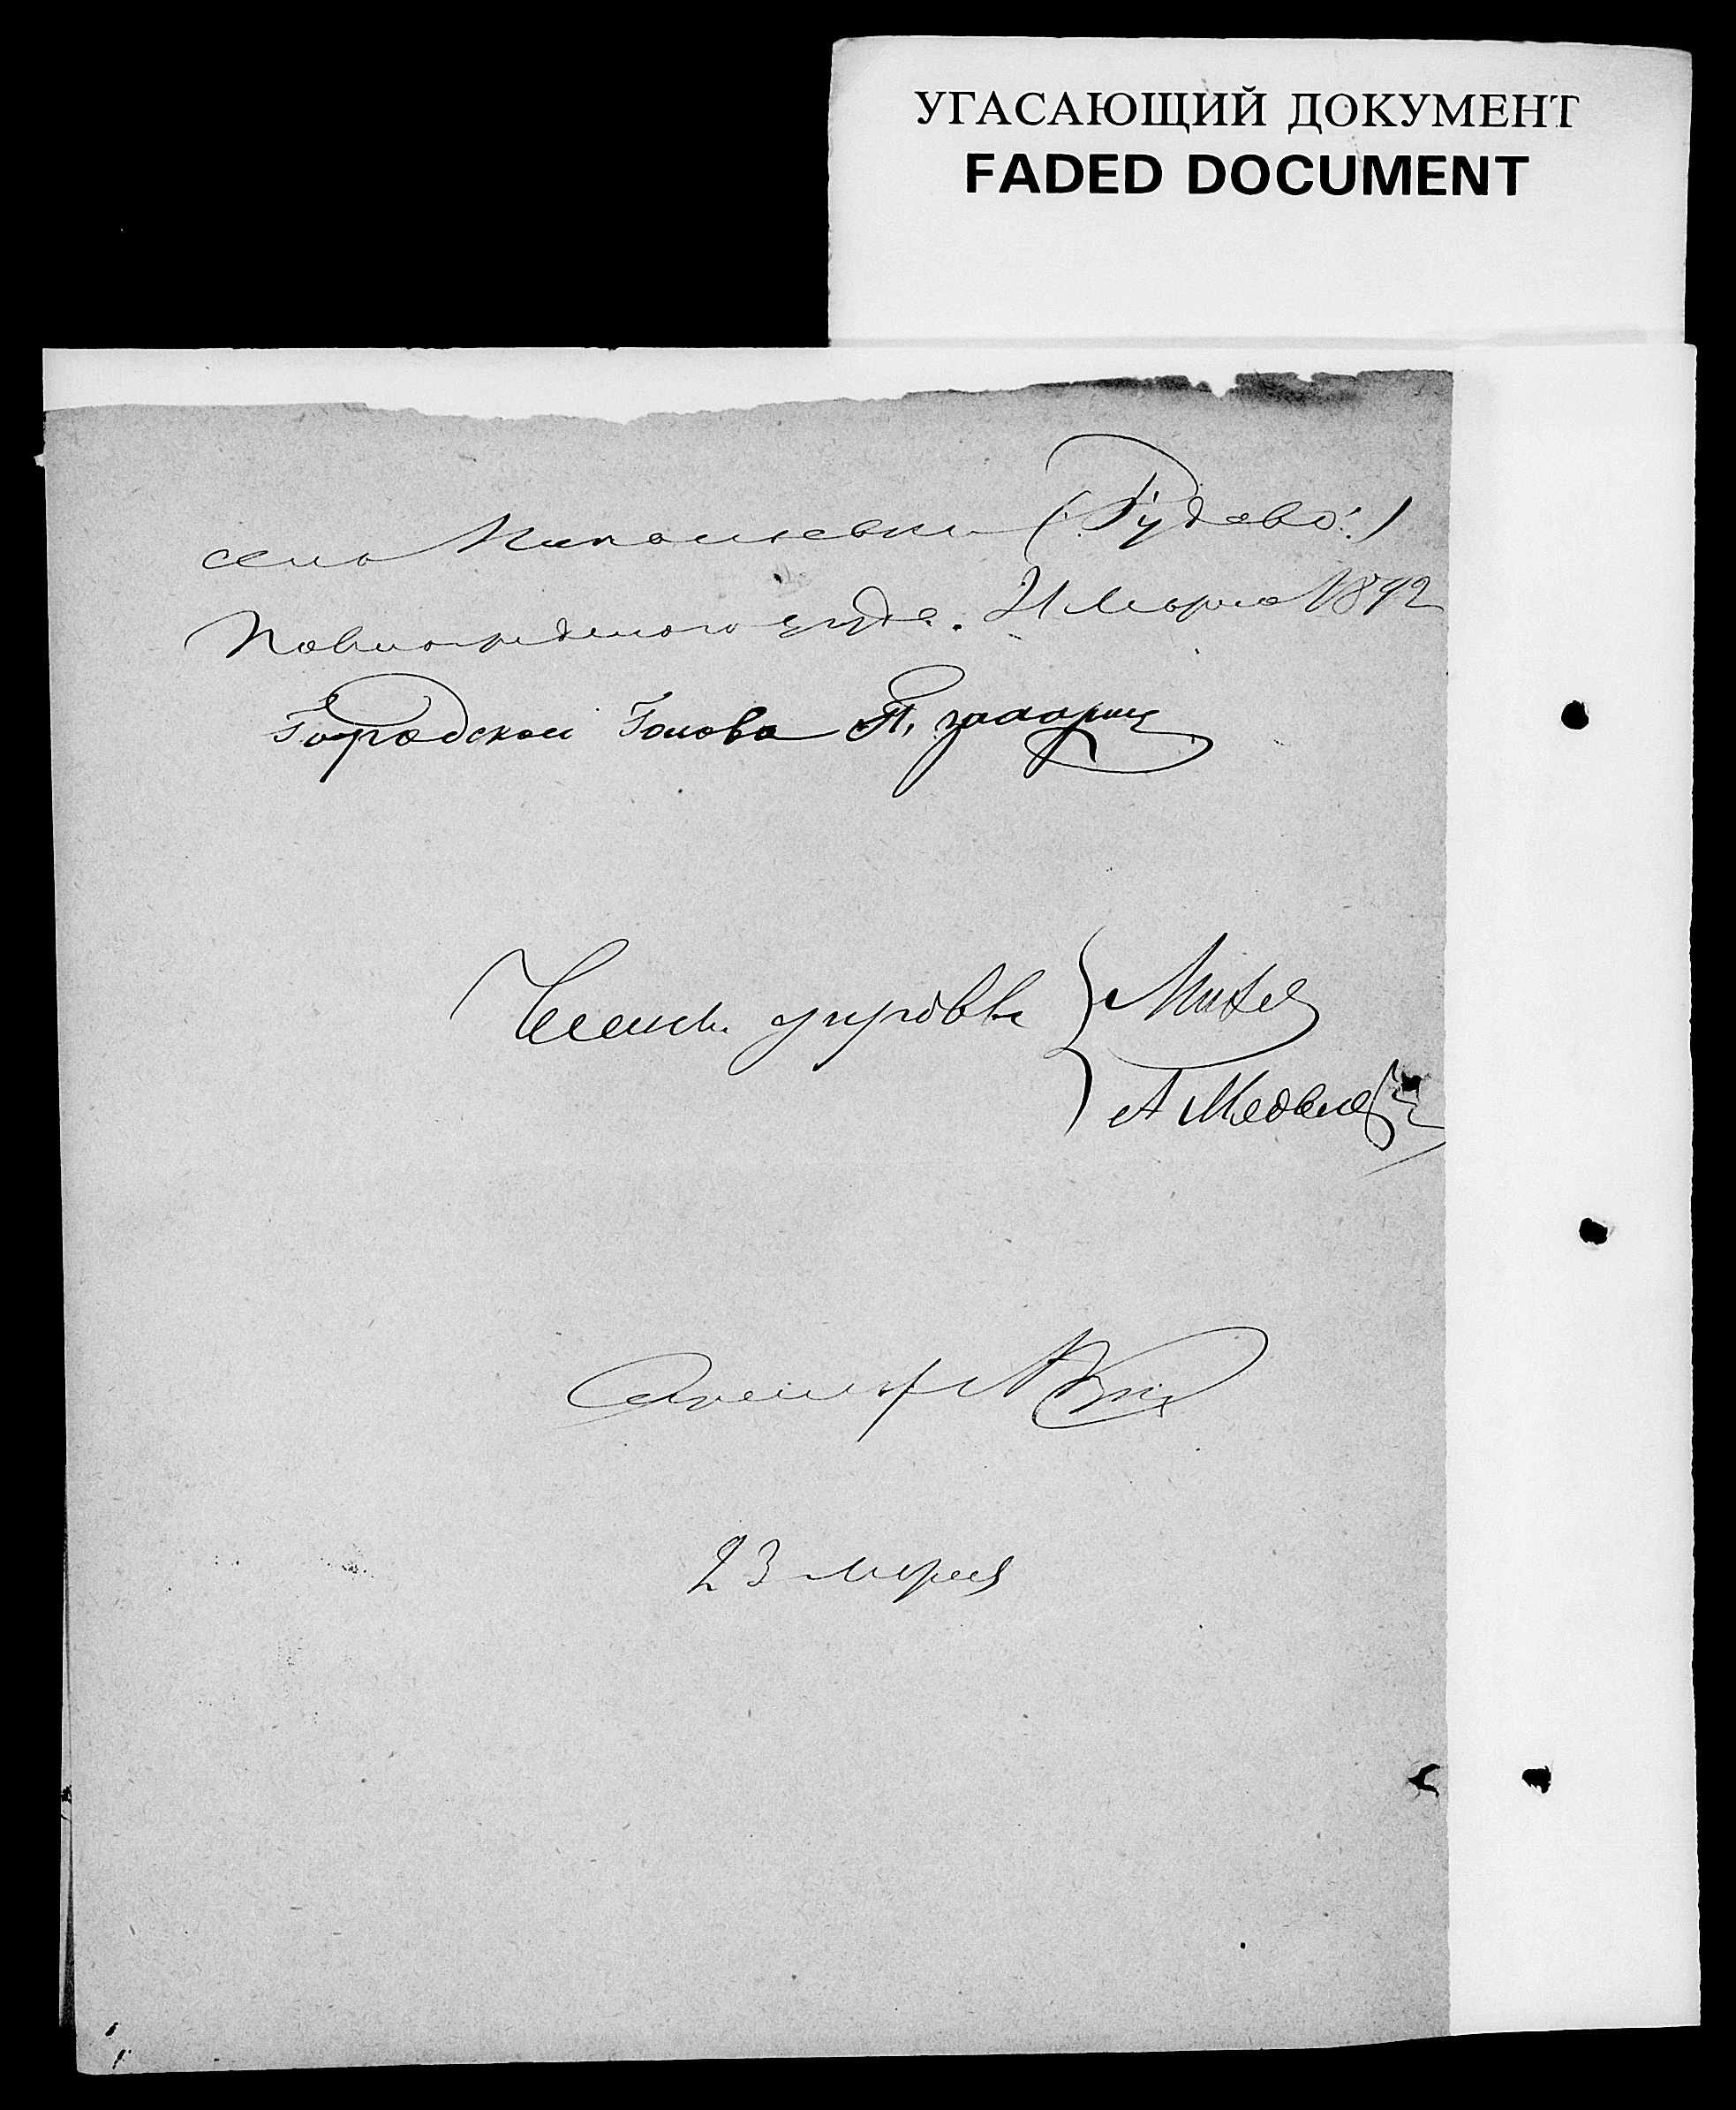 УГАСАЮЩИЙ ДОКУМЕНТ
FADED DOCUMENT
село Николаевки (Рудево:)
Павлоградскаго уезда. 21 Марта 1892
Городской Голова П.
Члены управы
А Медвед
Секретарь
23 марта